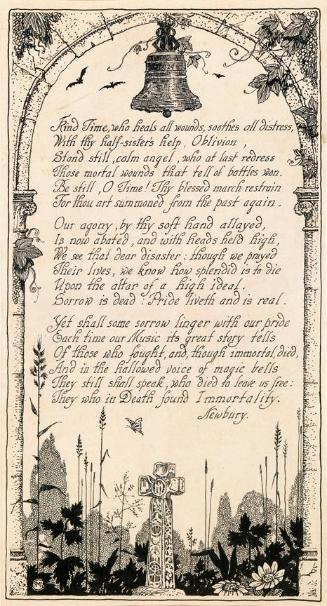 Kind Time, who heals all wounds, soothes all distress,
With thy half-sister's help, Oblivion,
Stand still, calm angel, who at last redress
Those mortal wounds that tell of battles won.
Be still, O Time! Thy blessed march restrain
For thou art summoned from the past again.
Our agony, by thy soft hand allayed,
Is now abated, and with heads held high,
We see that dear disaster: though we prayed
Their lives, we know how splendid is to die
Upon the altar of a high ideal.
Sorrow is dead: Pride liveth and is real.
Yet shall some sorrow linger with our pride
Each time our Music its great story tells
Of those who fought, and, though immortal, died,
And in the hallowed voice of magic bells
They still shall speak, who died to leave us free:
They who in Death found Immortality.
Newbury.